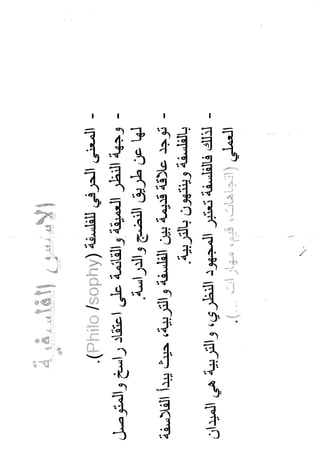 الاسس الفلسفية
- المعنى الحرفي للفلسفة (Philo /sophy).
- وجهة النظر العميقة والقائمة على اعتقاد راسخ والمتوصل
لها عن طريق النضج والدراسة.
- توجد علاقة قديمة بين الفلسفة والتربية، حيث يبدأ الفلاسفة
بالفلسفة وينتهون بالتربية.
- لذلك فالفلسفة تعتبر المجهود النظري، والتربية هي الميدان
العملي (اتجاهات، قيم، مهارات ...).